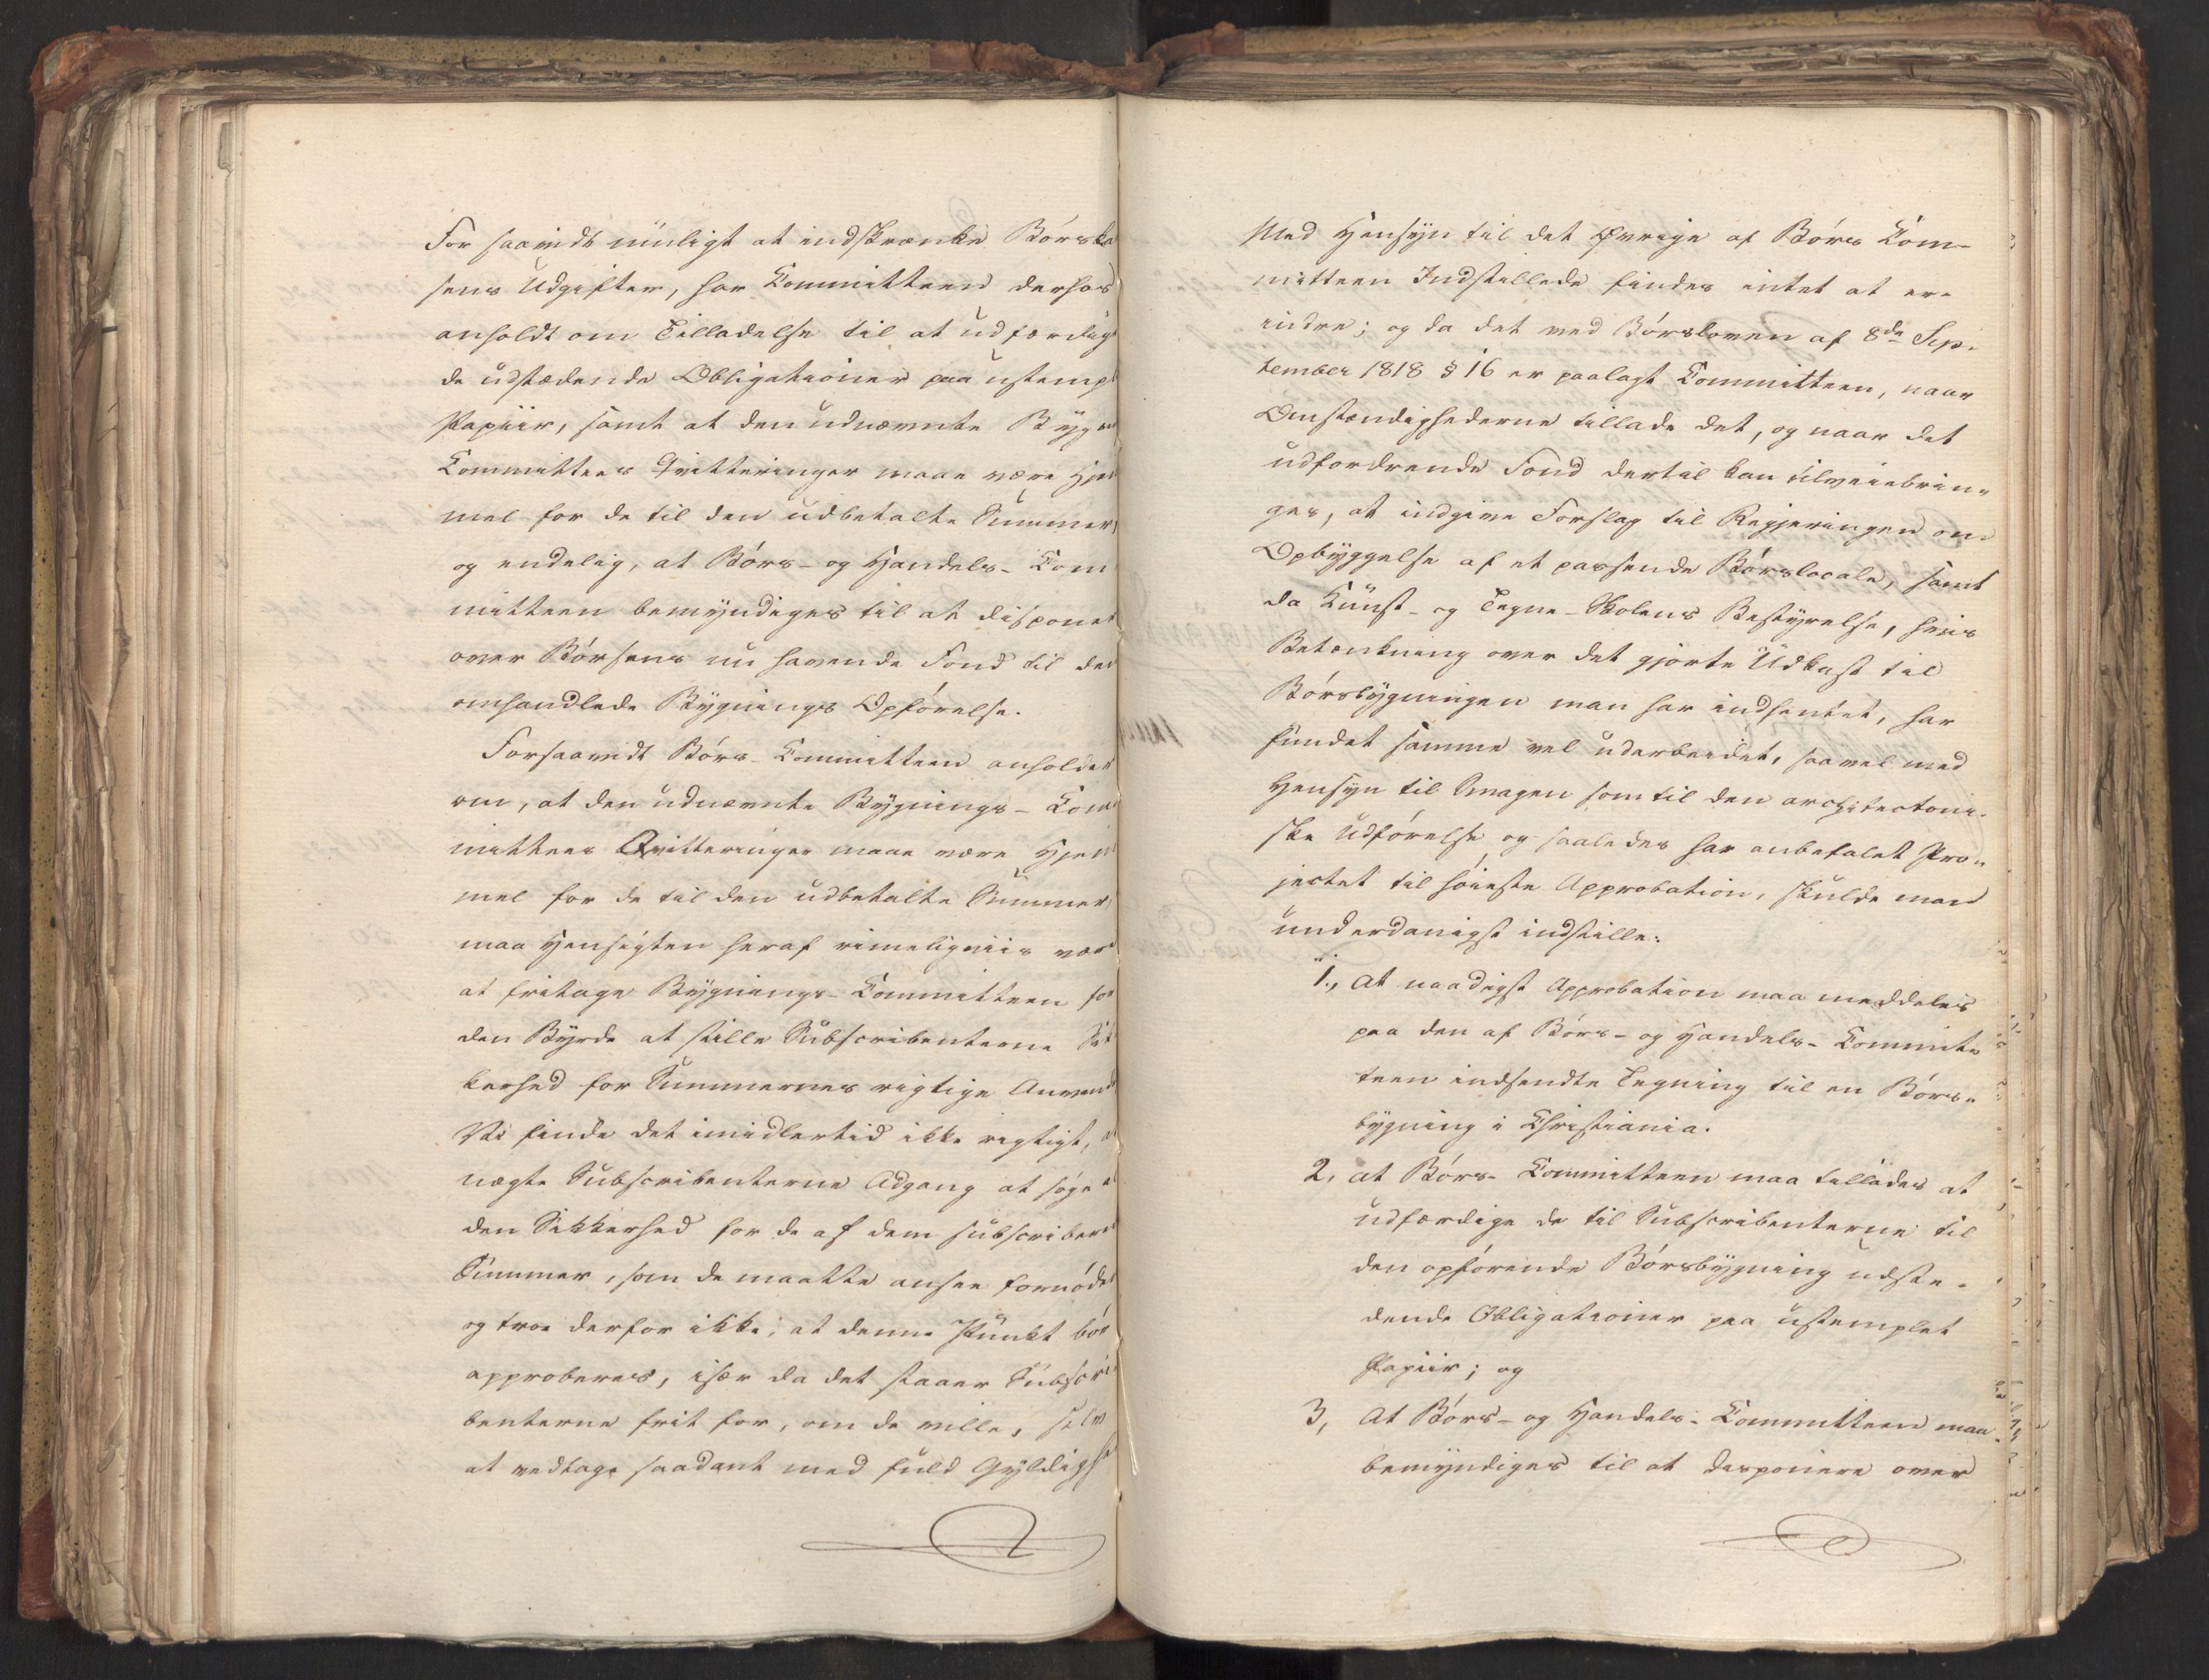 For saavidt muligt at indskrænke Børska
sens Udgifter, har Committeen derhos
anholdt om Tilladelse til at udfærdige
de udstædende Obligationer paa ustempl
Papiir, samt at den udnævnte Bygn
Committees Qvitteringer maae være Hje
mel for de til den udbetalte Summer,
og endelig, at Børs- og Handels-Com
mitteen bemyndiges til at disponer
over Børsens nu havende Fond til de
omhandlede Bygnings Opførelse.
Forsaavidt Børs-Committeen anholder
om, at den udnævnte Bygnings-Com
mittees Qvitteringer maae være Hjem
mel for de til den udbetalte Summer,
maa Hensigten heraf rimeligviis vær
at fritage Bygnings-Committeen for
den Byrde at stille Subscribenterne Sik
kerhed for Summernes rigtige Anvend
Vi finde det imidlertid ikke rigtigt, a
nægte Subscribenterne Adgang at søge a
den Sikkerhed for de af dem subscriber
Summer, som de maatte ansee fornøde
og troe derfor ikke, at denne Punkt bør
approberes, især da det staaer Subscri
benterne frit for, om de ville, selv
at vedtage saadant med fuld Gyldigh
Med Hensyn til det Øvrige af Børs Com-
mitteen Indstillede findes intet at er-
indre; og da det ved Børsloven af 8de Sep-
tember 1818 § 16 er paalagt Committeen, naar
Omstændighederne tillade det, og naar det
udfordrende Fond dertil kan tilveiebrin-
ges, at indgive Forslag til Regjeringen om
Opbyggelse af et passende Børslocale, samt
da Kunst- og Tegne-Skolens Bestyrelse, hvis
Betænkning over det gjorte Udkast til
Børsbygningen man har indhentet, har
fundet samme vel udarbeidet, saavel med
Hensyn til Smagen som til den architectoni-
ske Udførelse og saaledes har anbefalet Pro-
jectet til høieste Approbation, skulde man
underdanigst indstille:
1., At naadigst Approbation maa meddeles
paa den af Børs- og Handels-Commit-
teen indsendte Tegning til en Børs-
bygning i Christiania.
2, at Børs-Committeen maa tillades at
udfærdige de til Subscribenterne til
den opførende Børsbygning udstæ-
dende Obligationer paa ustemplet
Papiir; og
3, At Børs- og Handels-Committeen maa
bemyndiges til at disponere over